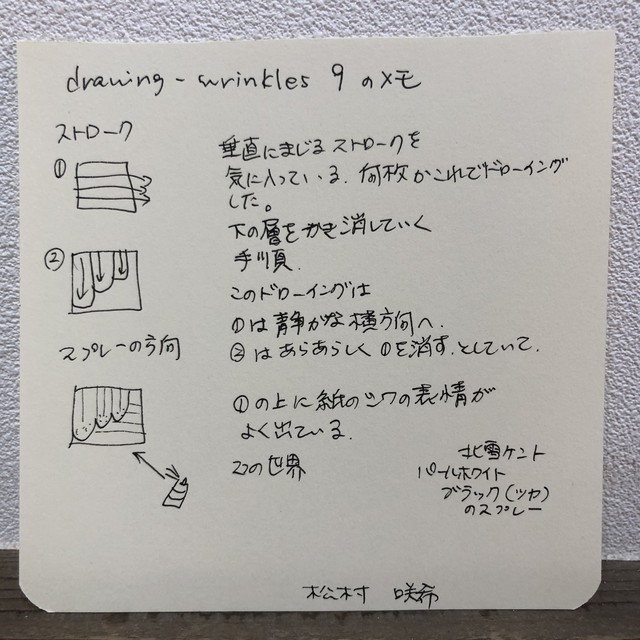 drawing - wrinkles 9 のメモ
ストローク
①
②
スプレーの方向
垂直にまじるストロークを
気に入っている. 何枚かこれでドローイング
した。
下の層をかき消していく
手順.
このドローイングは
①は静かな横方向へ.
②はあらあらしく①を消す.としていて.
①の上に紙のシワの表情が
よく出ている.
2つの世界
北雪ケント
パールホワイト
ブラック(ツヤ)
のスプレー
松村 咲希